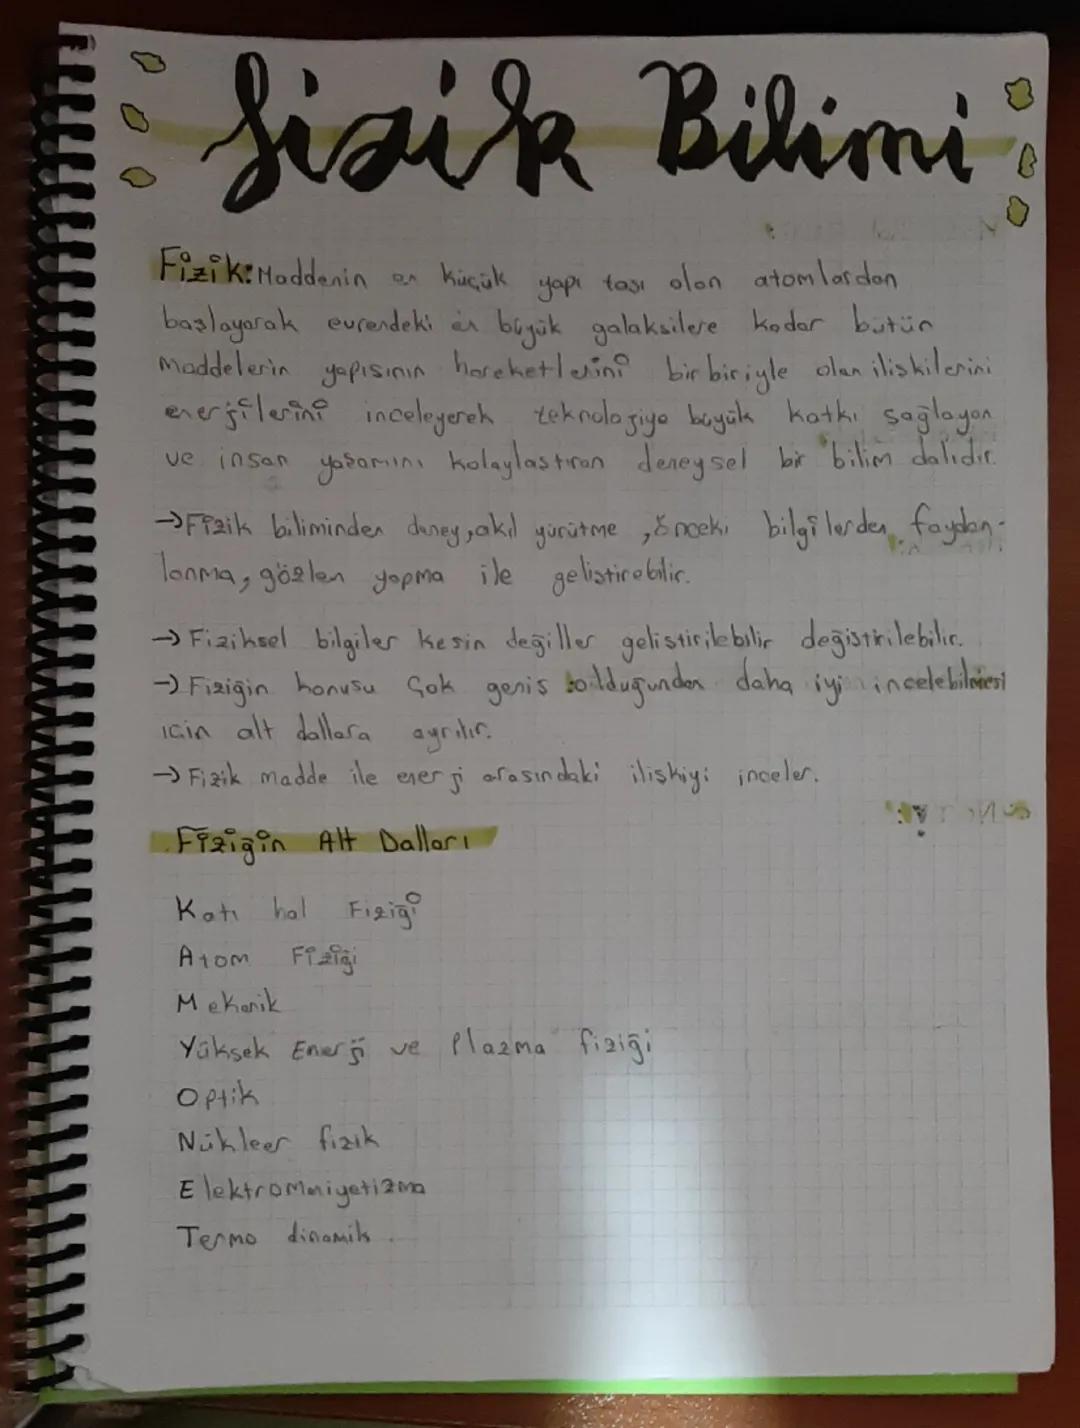 fizik Bilimi
Fizik: Maddenin en küçük yapı taşı olan atomlardan
başlayarak evrendeki en büyük galaksilere kadar bütün
maddelerin yapısının hareketlerini birbiriyle olan iliskilerini
enerjilerini inceleyerek teknolojiye büyük katkı sağlayan
ve insan yaşamını kolaylastıran deneysel bir bilim dalıdır.
→Fizik biliminden deney, akıl yürütme, önceki bilgilerden faydan-
lanma, gözlen yapma ile gelistirebilir.
→Fiziksel bilgiler kesin değiller gelistirilebilir değistirilebilir.
→Fiziğin konusu Çok genis olduğundan daha iyi incelebilmesi
için alt dallara ayrılır.
→Fizik madde ile enerji arasındaki iliskiyi inceler.
Fiziğin Alt Dalları
Katı hal Fiziği
Atom Fiziği
Mekanik
Yüksek Enerji ve Plazma fiziği
Optik
Nükleer fizik
Elektromniyetizma
Termo dinamik.